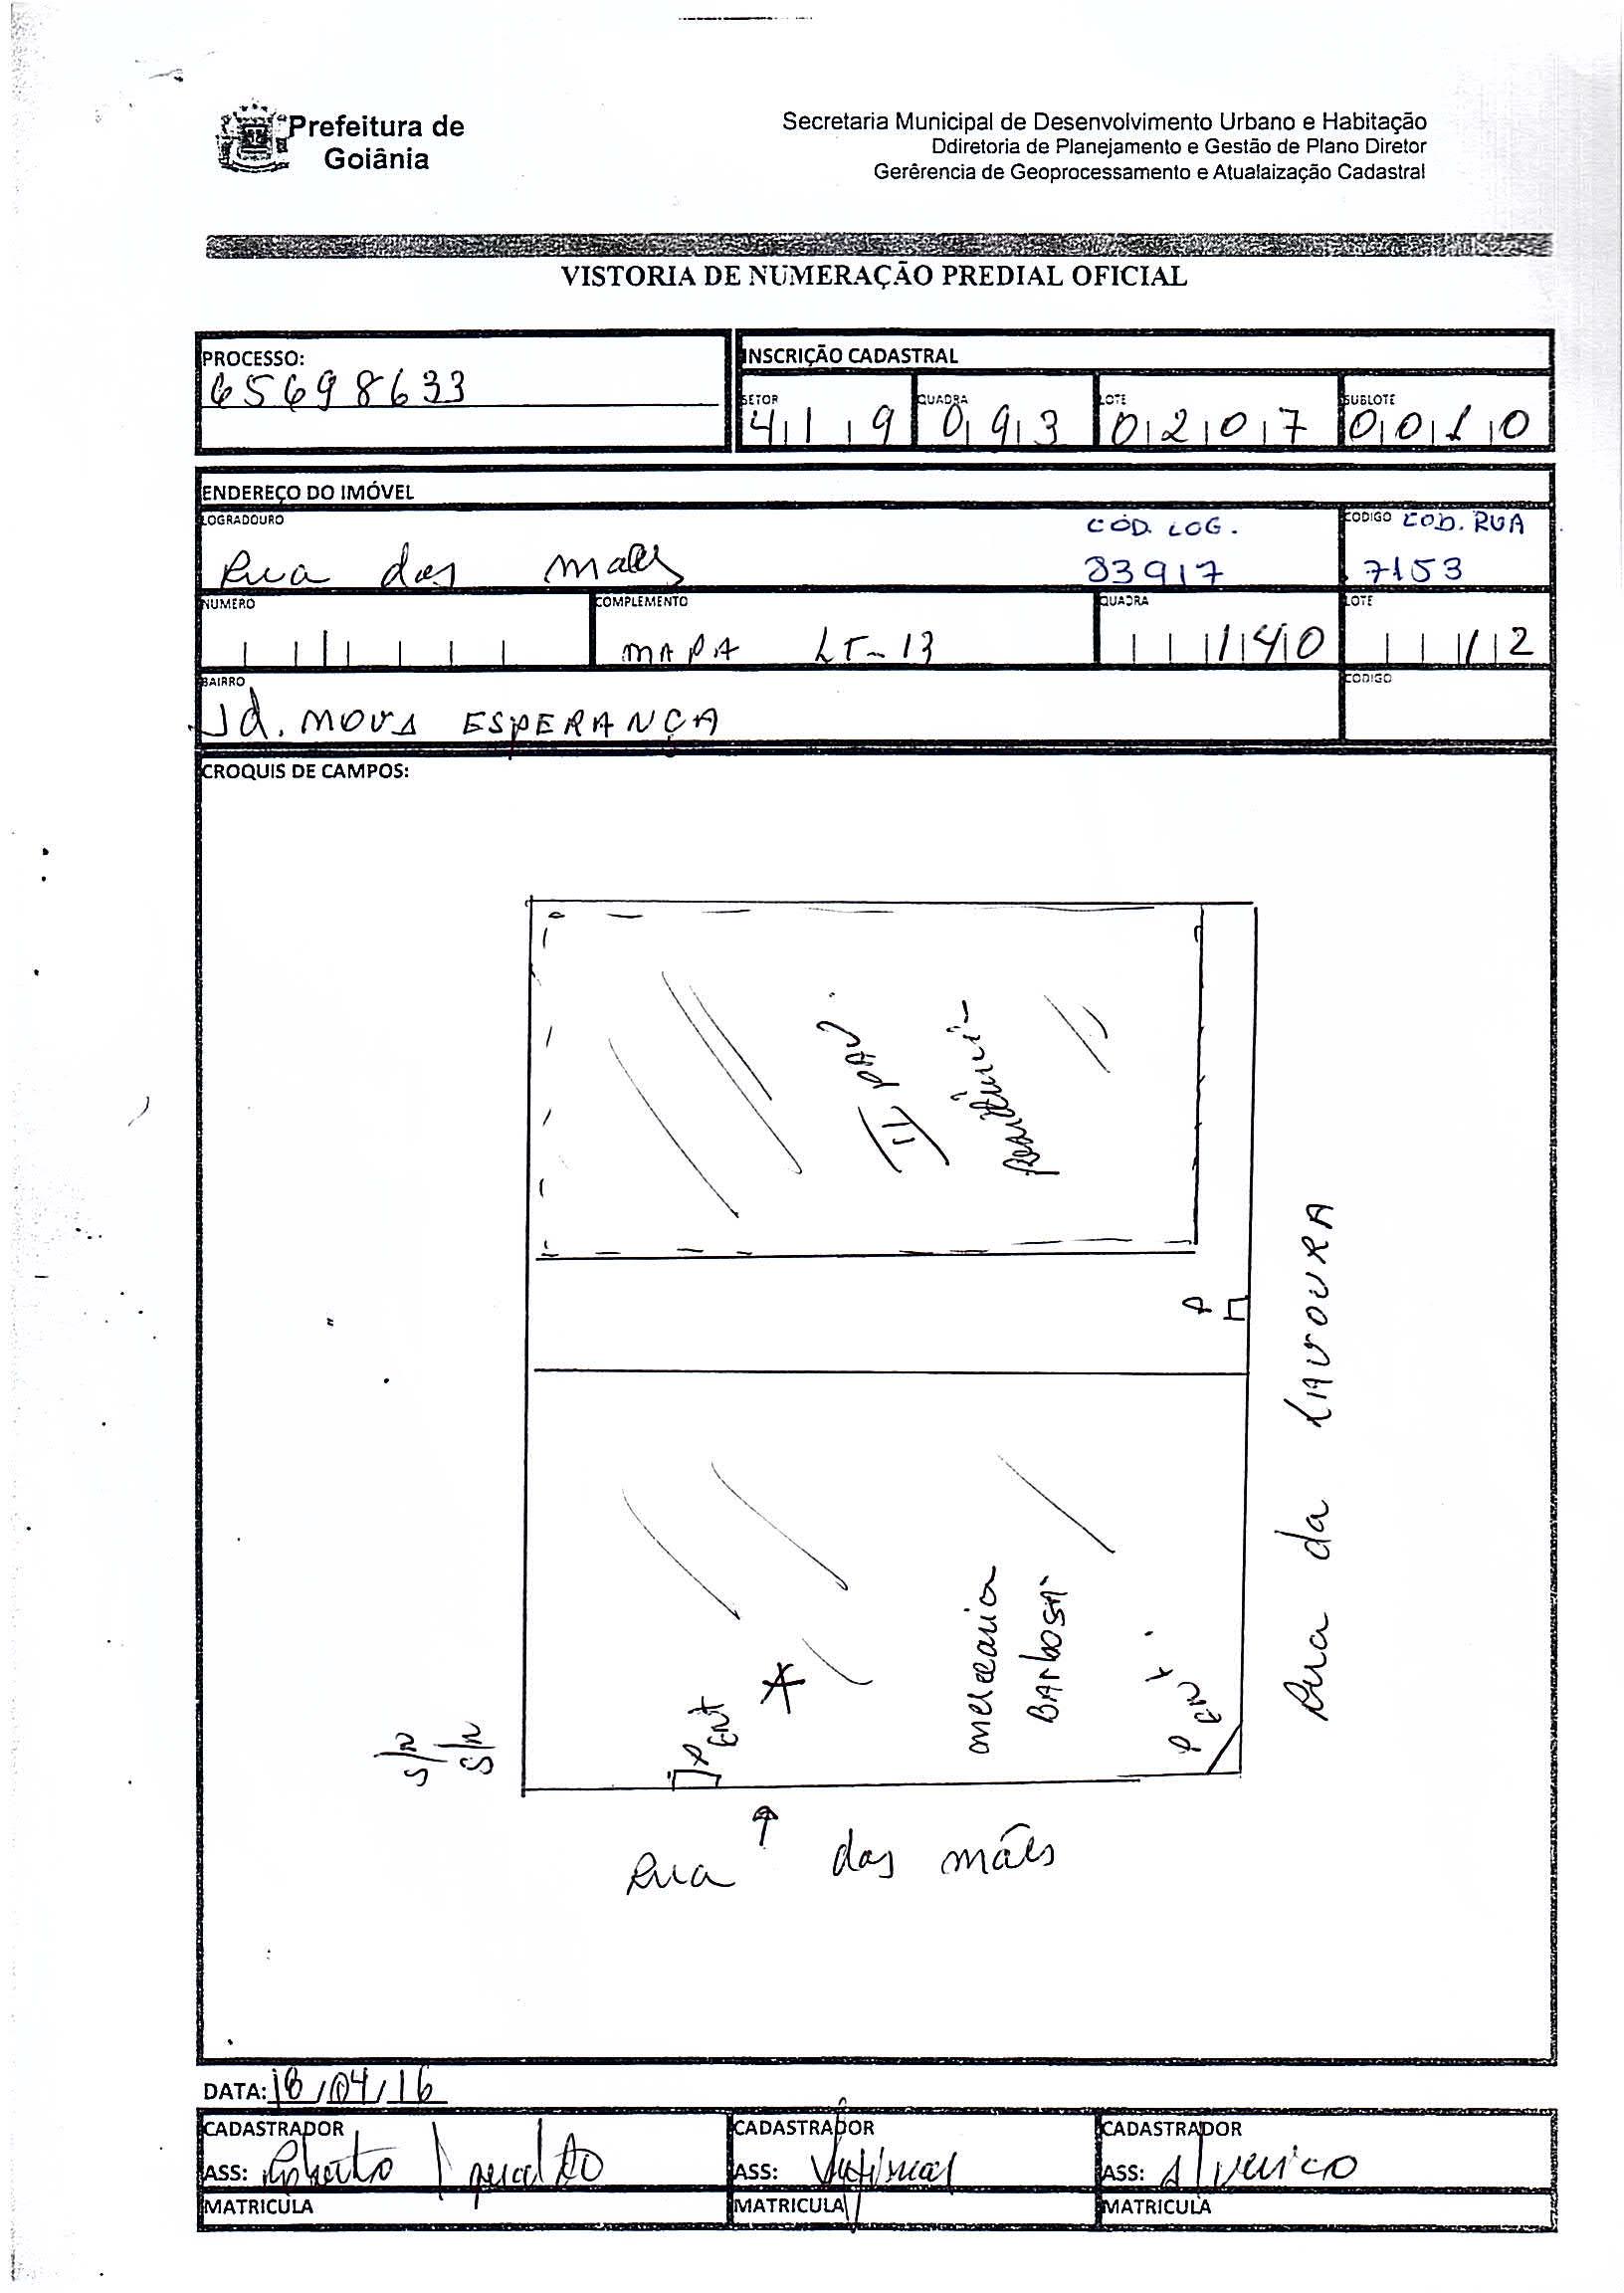 Prefeitura de
Goiânia
Secretaria Municipal de Desenvolvimento Urbano e Habitação
Ddiretoria de Planejamento e Gestão de Plano Diretor
Gerêrencia de Geoprocessamento e Atualaização Cadastral
VISTORIA DE NUMERAÇÃO PREDIAL OFICIAL
PROCESSO:
65698633
INSCRIÇÃO CADASTRAL
SETOR QUADRA LOTE SUBLOTE
419 093 0207 0010
ENDEREÇO DO IMÓVEL
LOGRADOURO CÓD. LOG. CODIGO COD. RUA
Rua das mães 83917 7153
NUMERO COMPLEMENTO QUADRA LOTE
MAPA LT-13 140 12
BAIRRO CODIGO
Jd. NOVA ESPERANÇA
CROQUIS DE CAMPOS:
II PAV.
P
Rua da LAVOURA
mercearia
BARBOSA
P ENT.
P ENT
S/N
S/N
Rua das mães
DATA: 18/04/16
CADASTRADOR CADASTRADOR CADASTRADOR
ASS: Roberto ASS: ASS:
MATRICULA MATRICULA MATRICULA